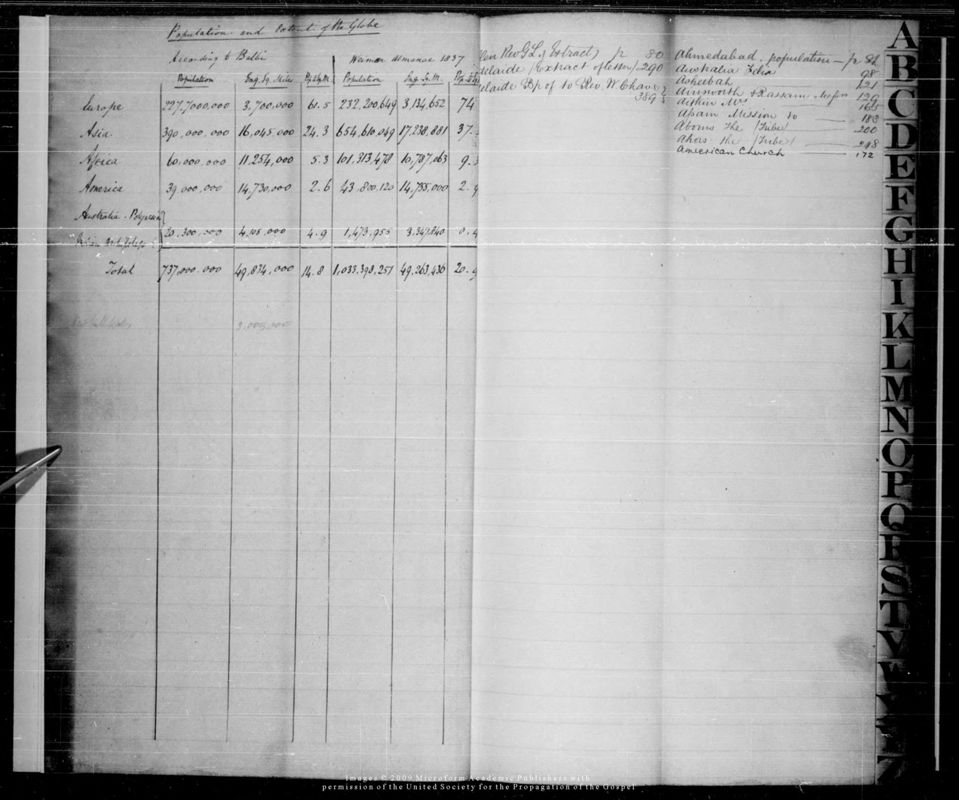 Population and Extent of the Globe
According to Balbi Weimar Almanac 1837
Population Eng. Sq. Miles Pop. Sq. M. Population Eng. Sq. M. Pop.
Europe 227,7000,000 3,700,000 61.5 232,200,649 3,134,652 74
Asia 390,000,000 16,045,000 24.3 654,610,049 17,238,881 37.
Africa 60,000,000 11,254,000 5.3 101,313,478 10,787,063 9.
America 39,000,000 14,730,000 2.6 43,800,120 14,755,000 2.9
Australia - Polynesia
20,300,000 4,105,000 4.9 1,473,955 3,347,840 0.4
Total 737,000,000 49,834,000 14.8 1,033,398,251 49,263,436 20.9
3,000,000
Rev G L Extract pr 80
delaide (Extract of letter) 290
delaide Bp of to Rev. W. 389
Ahmedabad, population - pr 82
Australia Felix 98
121
Ainsworth & Rassam 129
Aitkin Mr 165
Apam Mission to 183
Abors The (Tribe) 200
Ahors the (Tribe) 248
American Church 172
A
B
C
D
E
F
G
H
I
K
L
M
N
O
P
Q
R
S
T
V
W
Y
Z
Images © 2009 Microform Academic Publishers with
permission of the United Society for the Propagation of the Gospel